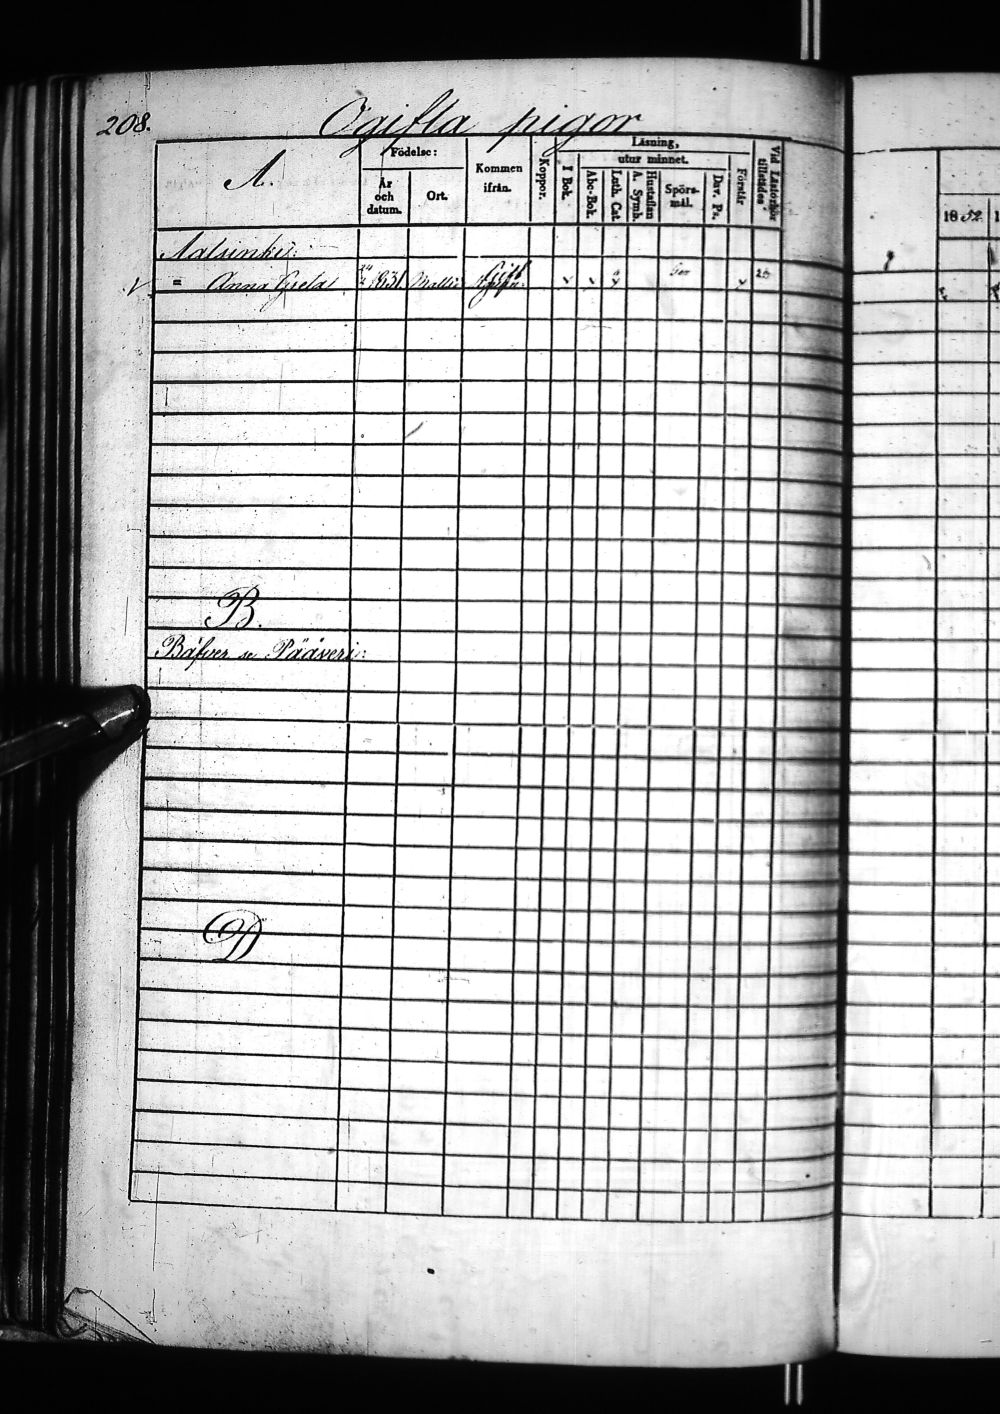 208.
Ogifta pigor
A.
Födelse:
År och datum.
Ort.
Kommen ifrån.
Koppor.
Läsning,
I Bok.
utur minnet.
Abc-Bok.
Luth. Cat.
Hustaflan A. Symb.
Spörs-mål.
Dav. Ps.
Förstår
Vid Läsförhör tillstädes
1852
Aalsinki:
= Anna Greta 1831
B.
Bäfver se Pääveri:
D